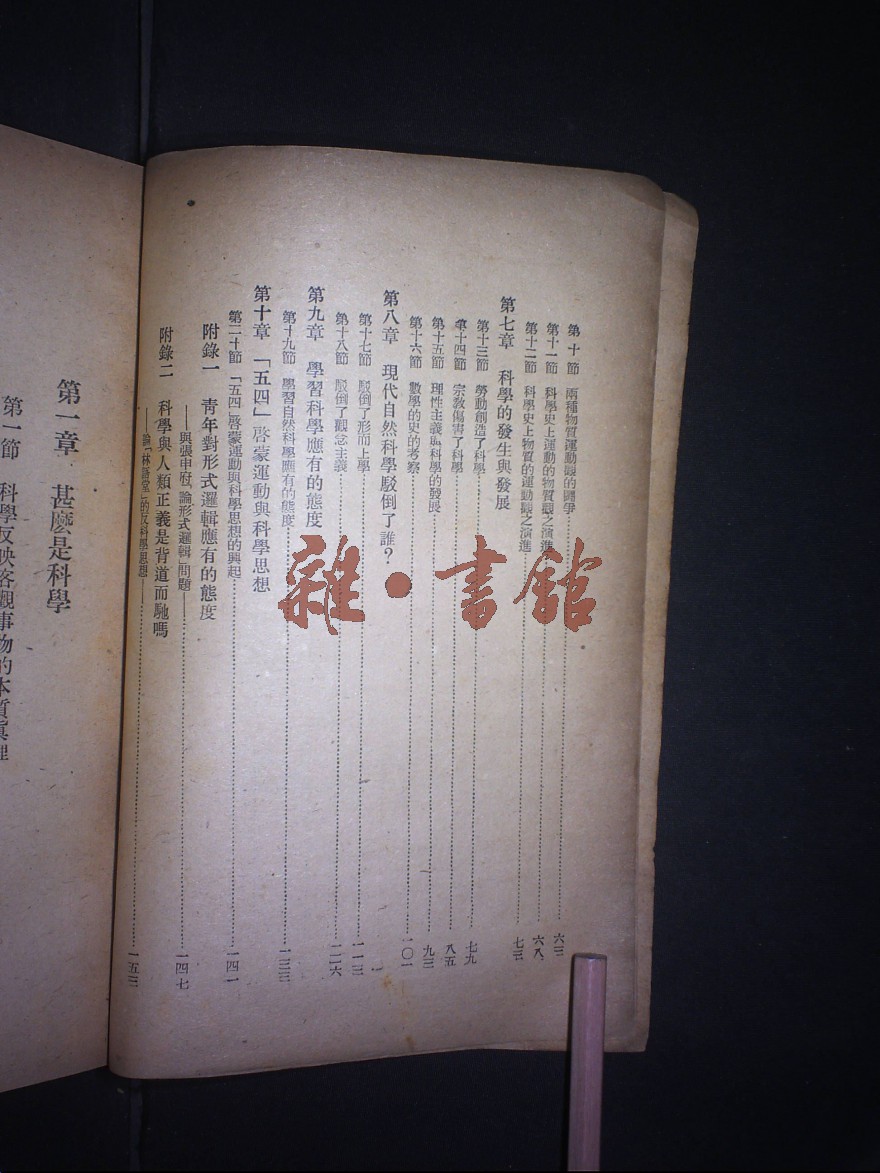 第十節 兩種物質運動觀的鬪爭 六三
第十一節 科學史上運動的物質觀之演進 六八
第十二節 科學史上物質的運動觀之演進 七三
第七章 科學的發生與發展
第十三節 勞動創造了科學 七九
第十四節 宗教傷害了科學 八五
第十五節 理性主義與科學的發展 九三
第十六節 數學的史的考察 一〇一
第八章 現代自然科學駁倒了誰？
第十七節 駁倒了形而上學 一一三
第十八節 駁倒了觀念主義 一二六
第九章 學習科學應有的態度
第十九節 學習自然科學應有的態度 一三三
第十章 「五四」啓蒙運動與科學思想
第二十節 「五四」啓蒙運動與科學思想的興起 一四一
附錄一 青年對形式邏輯應有的態度
——與張申府「論形式邏輯」問題 一四七
附錄二 科學與人類正義是背道而馳嗎
——論「林語堂」的反科學思想 一五三
第一章 甚麽是科學
第一節 科學反映客觀事物的本質眞理
雜·書館